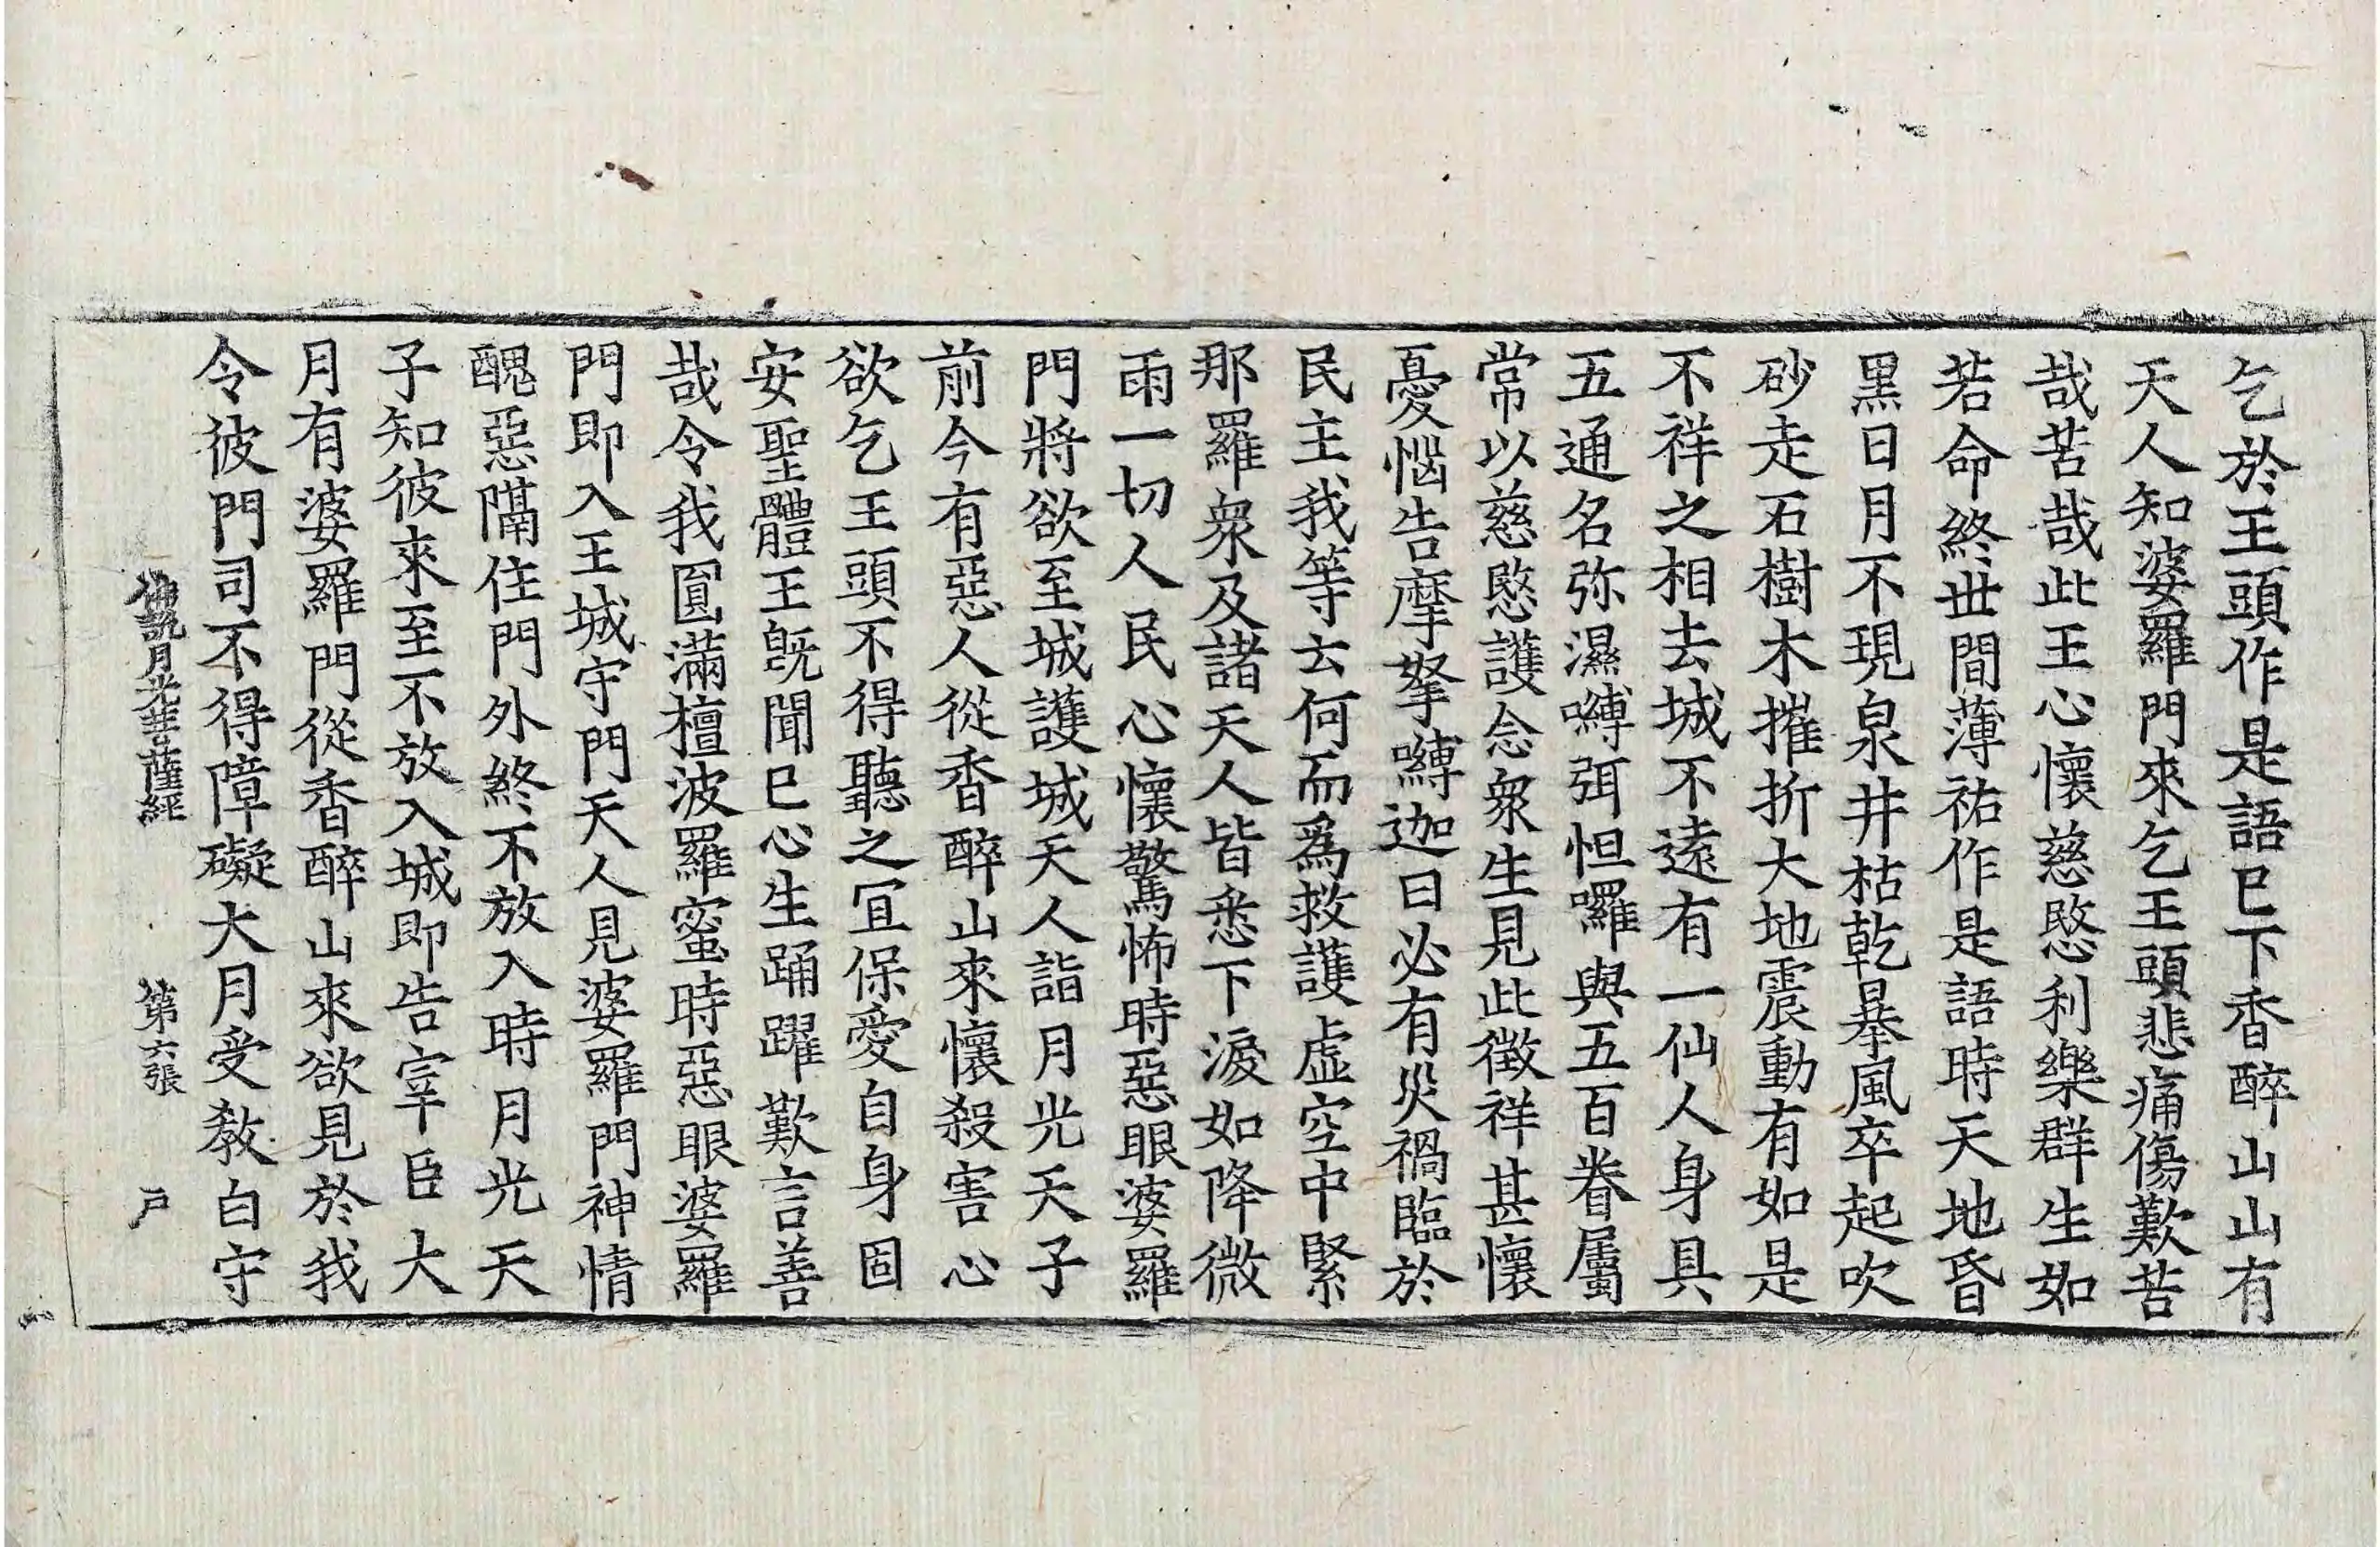 乞於王頭作是語已下香醉山山有
天人知婆羅門來乞王頭悲痛傷歎苦
哉苦哉此王心懷慈愍利樂群生如
若命終世間薄祐作是語時天地昏
黑日月不現泉井枯乾暴風卒起吹
砂走石樹木摧折大地震動有如是
不祥之相去城不遠有一仙人身具
五通名弥濕嚩弭怛囉與五百眷屬
常以慈愍護念衆生見此徵祥甚懷
憂惱告摩拏嚩迦曰必有災禍臨於
民主我等云何而爲救護虛空中緊
那羅衆及諸天人皆悉下淚如降微
雨一切人民心懷驚怖時惡眼婆羅
門將欲至城護城天人詣月光天子
前今有惡人從香醉山來懷殺害心
欲乞王頭不得聽之冝保愛自身固
安聖體王旣聞已心生踊躍歎言善
哉令我圓滿檀波羅蜜時惡眼婆羅
門即入王城守門天人見婆羅門神情
醜惡隔住門外終不放入時月光天
子知彼來至不放入城即告宰臣大
月有婆羅門從香醉山來欲見於我
令彼門司不得障礙大月受教白守
佛說月光菩薩經 第六張 戶